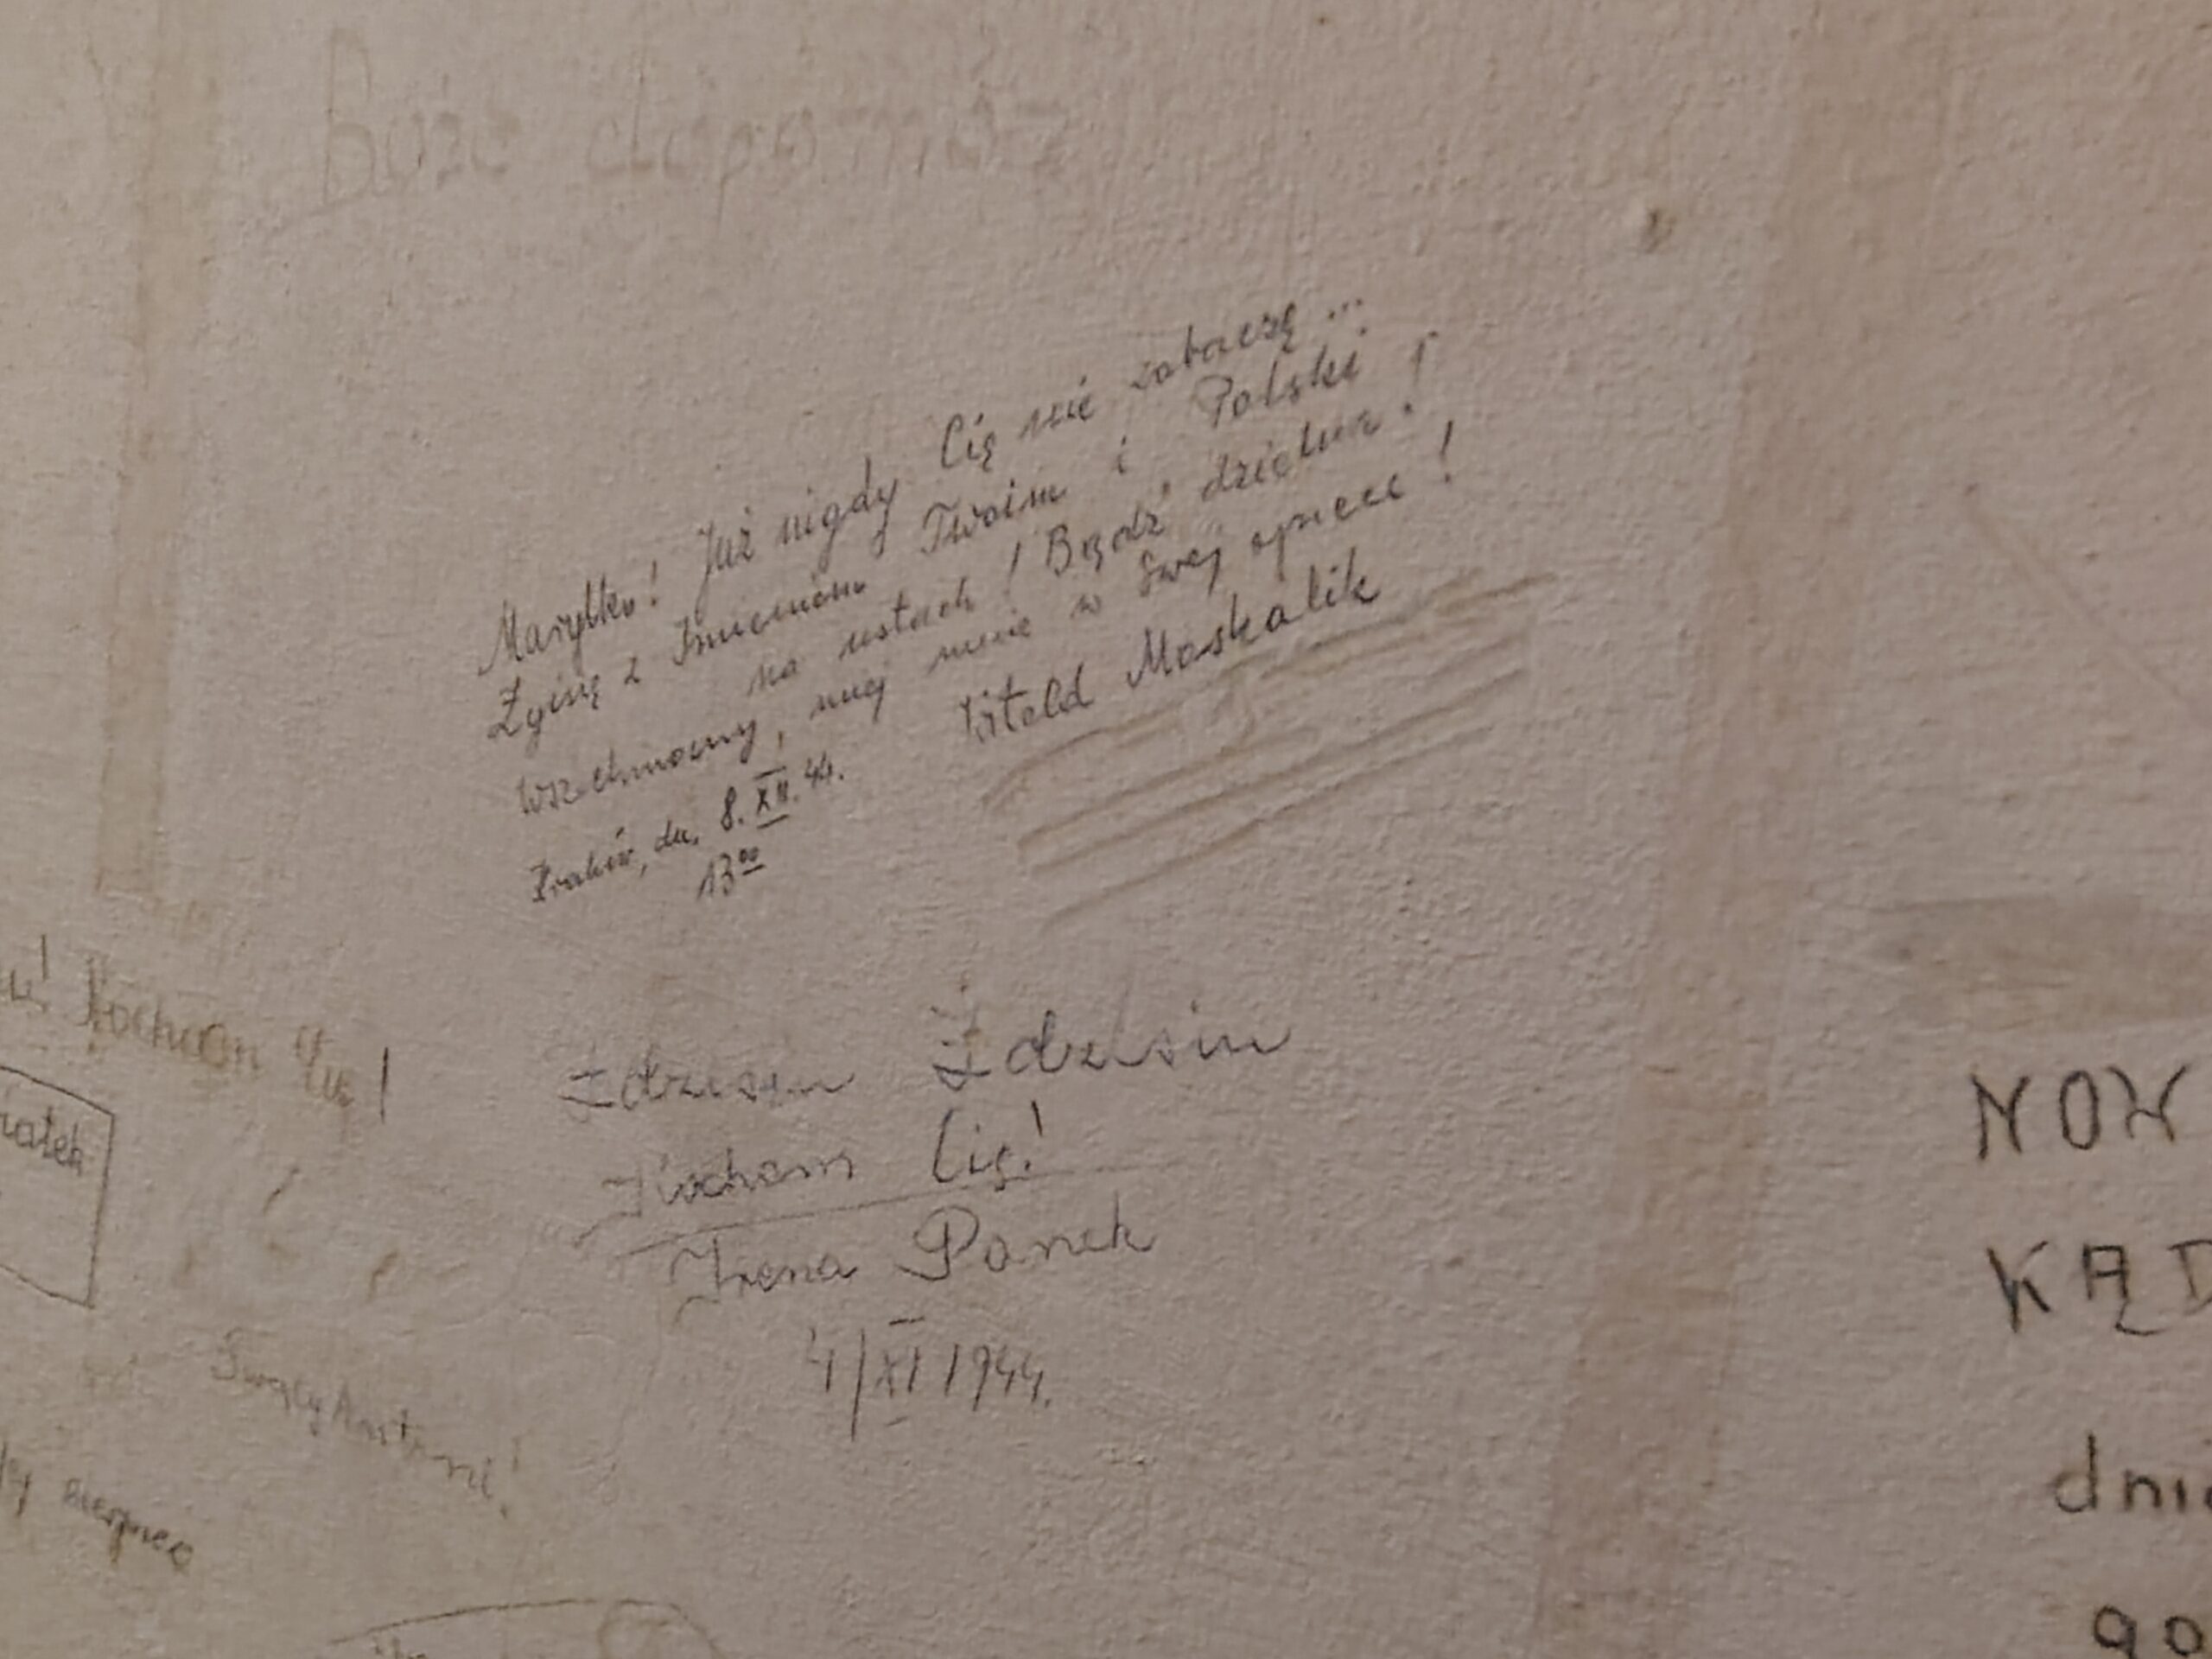 Boże dopomóż
Marylko! Już nigdy Cię nie zobaczę ...
Zginę z Imieniem Twoim i Polski
na ustach! Bądź dzielna!
Wszechmocny, miej mnie w Swej opiece!
Kraków, dn. 8. XII. 44.
13⁰⁰
Witold Moskalik
Kochom Cię!
Zdzisiu Zdzisiu
Kocham Cię!
Irena Panek
4/XI 1944.
Święty Antoni!
sierpień
NOW
KĄD
dni
go